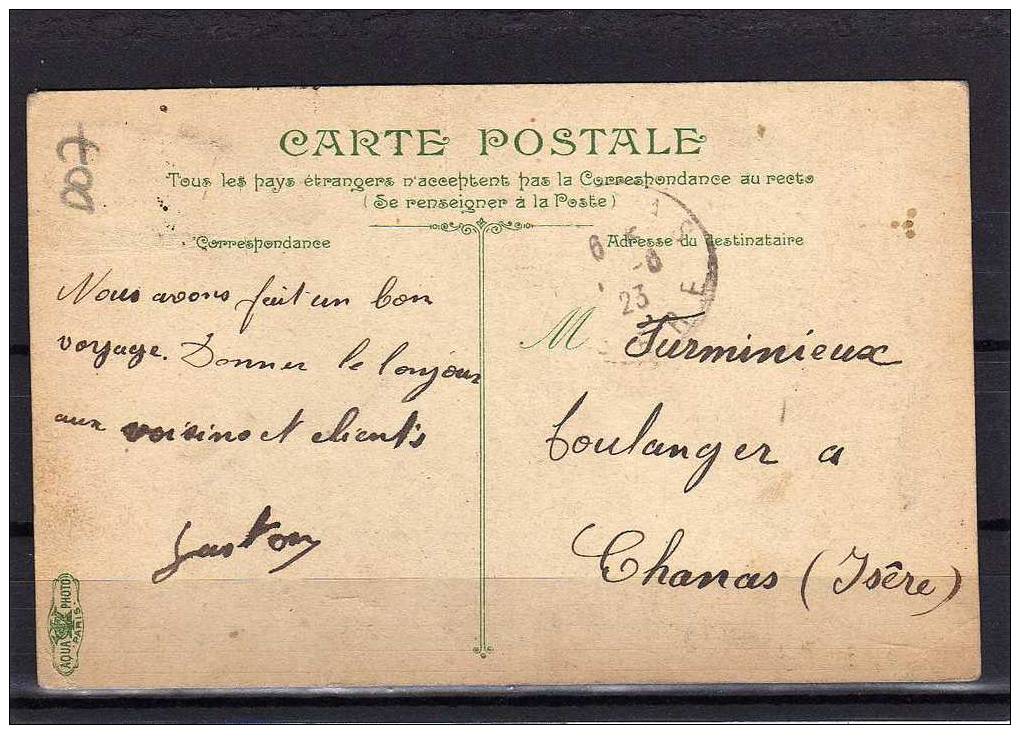 007
CARTE POSTALE
Tous les pays étrangers n'acceptent pas la Correspondance au recto
(Se renseigner à la Poste)
Correspondance
Nous avons fait un bon
voyage. Donner le bonjour
aux voisins et clients
Gaston
AQUA PHOTO
PARIS
Adresse du destinataire
6
-6
23
M Furminieux
boulanger a
Chanas (Isère)